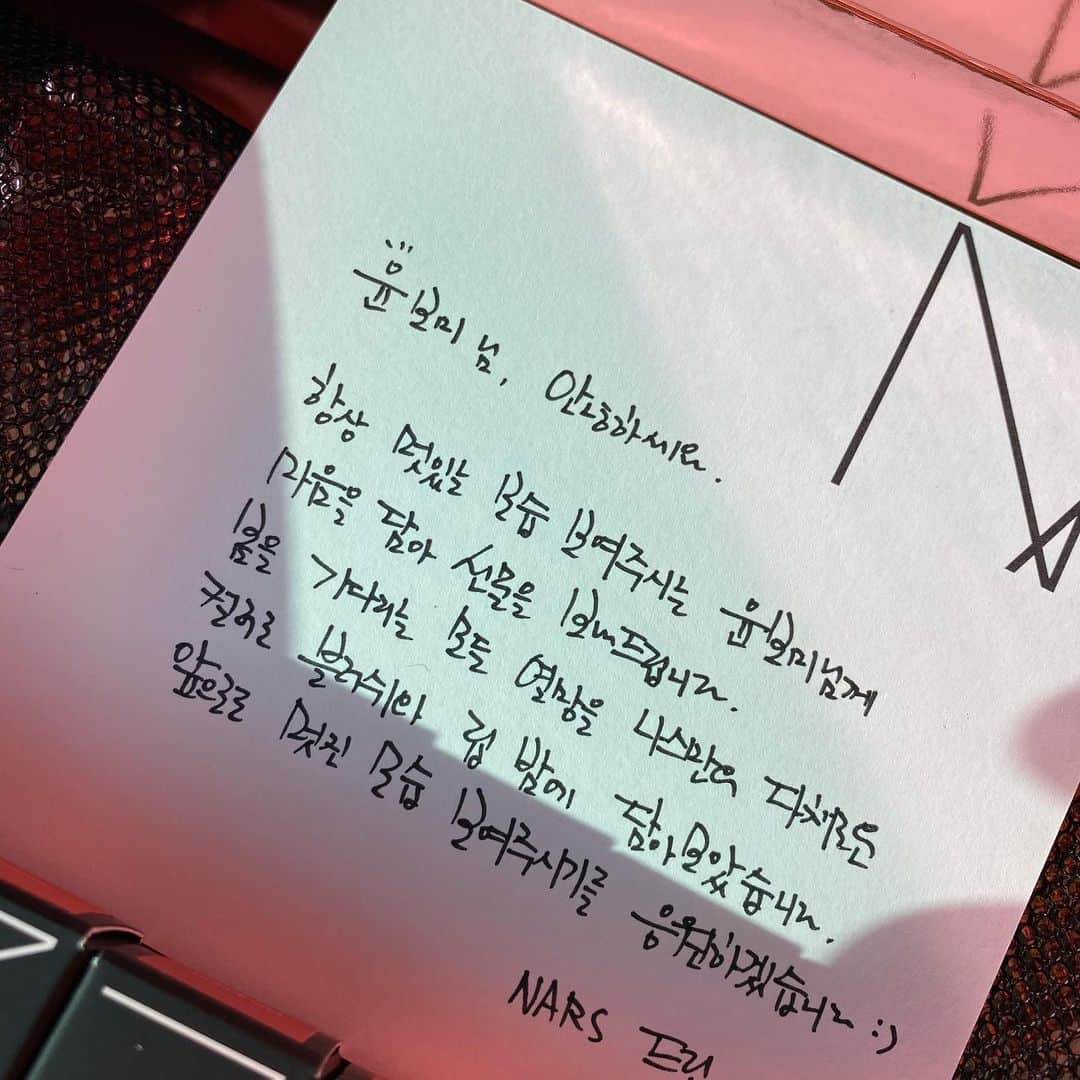 윤보미 님, 안녕하세요.
항상 멋있는 모습 보여주시는 윤보미님께
마음을 담아 선물을 보내드립니다.
봄을 기다리는 모든 열망을 나스만의 다채로운
컬러로 블러쉬와 립 밤에 담아보았습니다.
앞으로로 멋진 모습 보여주시기를 응원하겠습니다 :)
NARS 드림